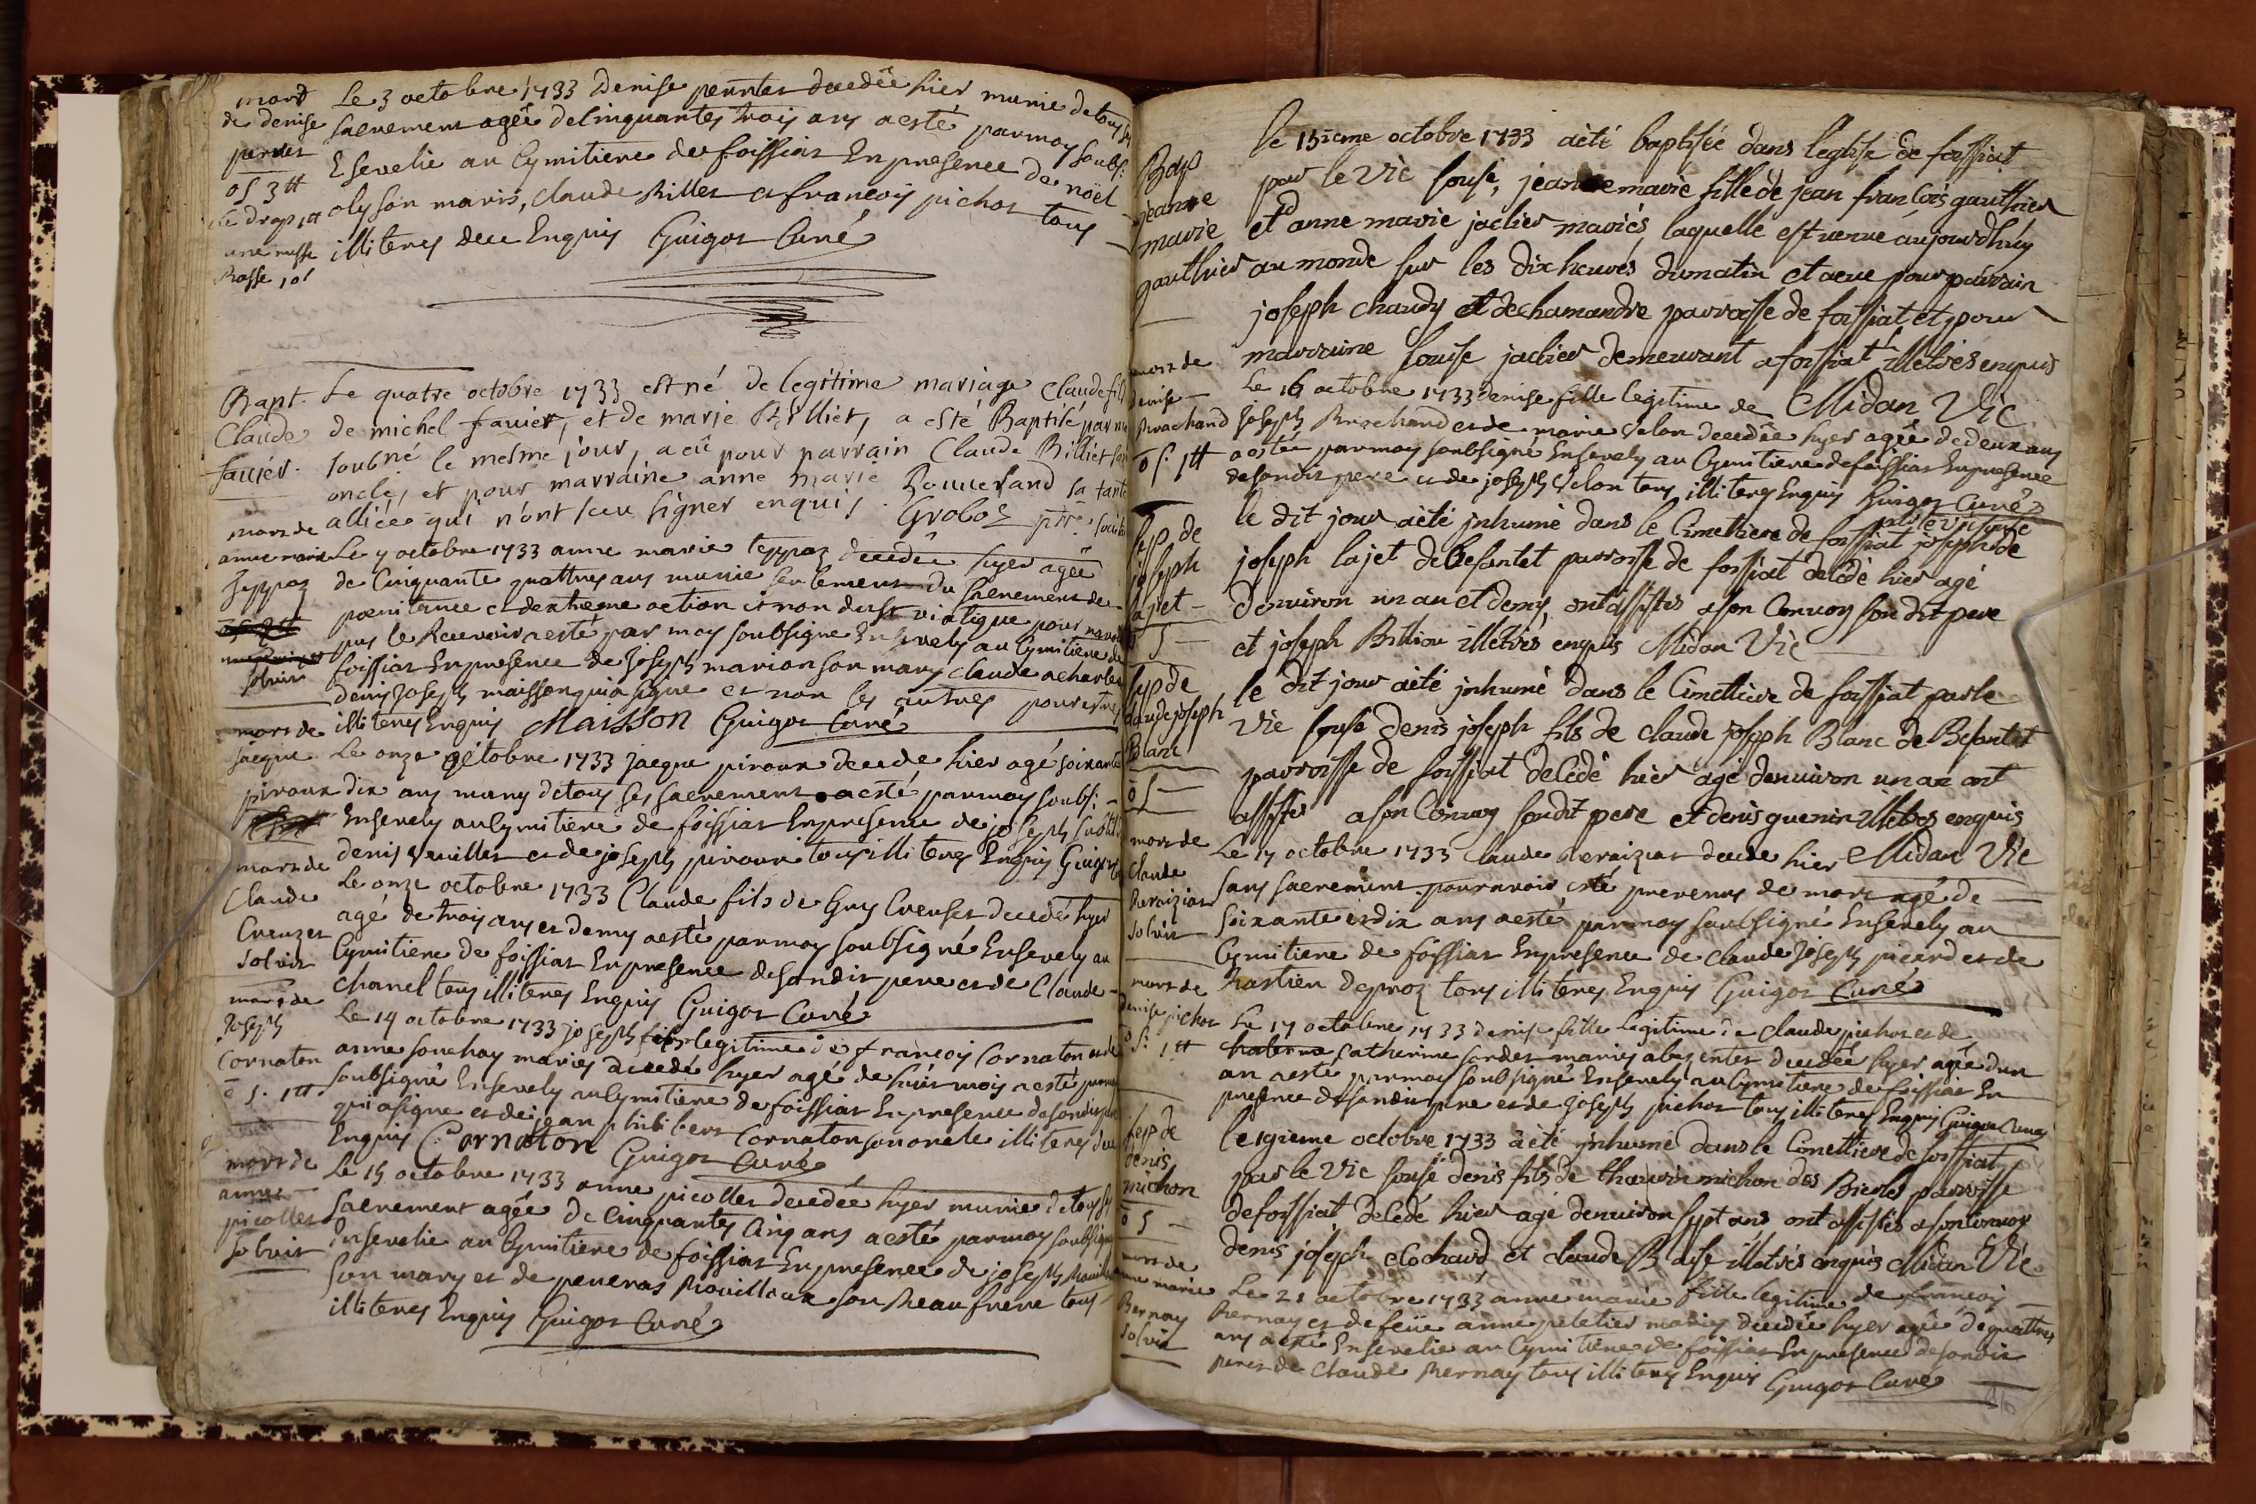 mort
de denise
perrier
o S 3 ₶
le drap 1 ₶
une messe
Basse 10 s
Le 3 octobre 1733 Denise decedée hier munie de tous
sacrement agée de cinquantes trois ans a esté par moy soubs:
Ensevelie au Cymitiere de foissiat En presence de noël
oly son maris, claude Billet et francois pichot tous
illiteres de ce Enquis Guigot Curé
Bapt.
Claude
favier.
Le quatre octobre 1733 est né de legitime mariage Claude fils
de michel favier, et de marie Billiet, a esté Baptisé par moy
soubné le mesme jour, a eû pour parrain Claude Billiet son
oncle, et pour marraine anne marie Bouverand sa tante
alliée qui n'ont sceu signer enquis. Groboz ptre
mort de
anne marie
Teppaz
solvit
Le 7 octobre 1733 anne marie teppaz decedée hyer agée
de Cinquante quattres ans munie seulement du sacrement de
pœnitence et dextreme onction et non du St viatique pour
pus le Recevoir a esté par moy soubsigné Ensevely au Cymitiere de
foissiat En presence de Joseph marion son mary claude acharles
denis Joseph maisson qui a signé et non les autres pour estre
illiteres Enquis Maisson Guigot Curé
mort de
jacque
piroux
Le onze octobre 1733 jacque piroux decede hier agé soixante
dix ans muny de tous ses sacrement a esté par moy soubs: -
Ensevely au Cymitiere de foissiat En presence de joseph
denis veuillet et de joseph piroux tous illiteres Enquis Guigot
mort de
Claude
Creuzet
solvit
Le onze octobre 1733 Claude fils de Guy Creuset decedé hyer
agé de trois ans et demy a esté par moy soubsigné Ensevely au
Cymitiere de foissiat En presence de son dit pere et de Claude -
chanel tous illiteres Enquis Guigot Curé
mort de
Joseph
Cornaton
o S. 1 ₶
Le 14 octobre 1733 joseph fils legitime de francois Cornaton et de
anne souchay mariés decedé hyer agé de huit mois a esté par moy
soubsigné Ensevely au Cymitiere de foissiat En presence de son dit pere
qui a signé et de jean philibert Cornaton son oncle illiteres de ce
Enquis Cornaton Guigot Curé
mort de
anne
picollet
solvit
Le 15 octobre 1733 anne picollet decedée hyer munie de tous ses
sacrement agée de Cinquantes Cinq ans a esté par moy soubsigné
Ensevelie au Cymitiere de foissiat En presence de joseph
son mary et de peneras Rouilloux son Beau frere tous -
illiteres Enquis Guigot Curé
Bap
jeanne
marie
gauthier
le 15ieme octobre 1733 aèté baptisée dans leglise de foissiat
par le Vic sousé, jeanne marie fille de jean francois gauthier
et danne marie jaclier mariés, laquelle est venue aujourdhuy
au monde sur les dix heures dumatin et aeue pour parrain
joseph chaudy et de chamandre parroisse de foissiat et pour
marraine louise jaclier demeurant a foissiat illetrés enquis
Midan Vic
mort de
denise
Brochand
o S. 1 ₶
Le 16 octobre 1733 denise fille legitime de
Joseph Brochand et de marie Velon decedée hyer agée de deux ans
a esté par moy soubsigné Ensevely au Cymitiere de foissiat En presence
de son dit pere et de joseph Velon tous illiteres Enquis Guigot Curé
sep de
joseph
lajet
o S
par le Vic sousé
le dit jour aèté inhumé dans le Cimettiere de foissiat joseph de
joseph lajet de Besantet parroisse de foissiat decedé hier agé
denuiron un an et demy, ont assistés a son Convoy son dit pere
et joseph Billion illetrés enquis Midan Vic
sep de
claude joseph
Blanc
o S
le dit jour aèté inhumé dans le Cimettiere de foissiat par le
Vic sousé denis joseph fils de claude joseph Blanc de Besantet
parroisse de foissiat decedé hier agé denuiron un an ont
assistés a son Convoy son dit pere et denis guenin illetrés enquis
Midan Vic
mort de
Claude
Reraiziat
solvit
Le 17 octobre 1733 Claude Reraiziat decede hier
sans sacrement pour avoir esté prevenus de mort agé de
soixante et dix ans a esté par moy soubsigné Ensevely au
Cymitiere de foissiat En presence de claude Joseph picard et de
Bastien deproz tous illiteres Enquis Guigot Curé
mort de
denise pichot
o S. 1 ₶
Le 17 octobre 1733 denise fille legitime de claude pichot et de
Catherine sordet mariés decedée hyer agée dun
an a esté par moy soubsigné Ensevely au Cymitiere de foissiat En
presence de son dit pere et de Joseph pichot tous illiteres Enquis Guigot Curé
sep de
denis
michon
o S
le 19ieme octobre 1733 aèté inhumé dans le Cimettiere de foissiat
par le Vic sousé denis fils de michon des parroisse
de foissiat decedé hier agé denuiron sept ans ont assistés a son Convoy
denis joseph clochard et claude Basse illetrés enquis Midan Vic
mort de
anne marie
Bernay
solvit
Le 21 octobre 1733 anne marie fille legitime de francois
Bernay et de feüe anne peletier mariés decedée hyer agée de quattres
ans a esté Ensevelie au Cymitiere de foissiat En presence de son dit
pere et de Claude Bernay tous illiteres Enquis Guigot Curé